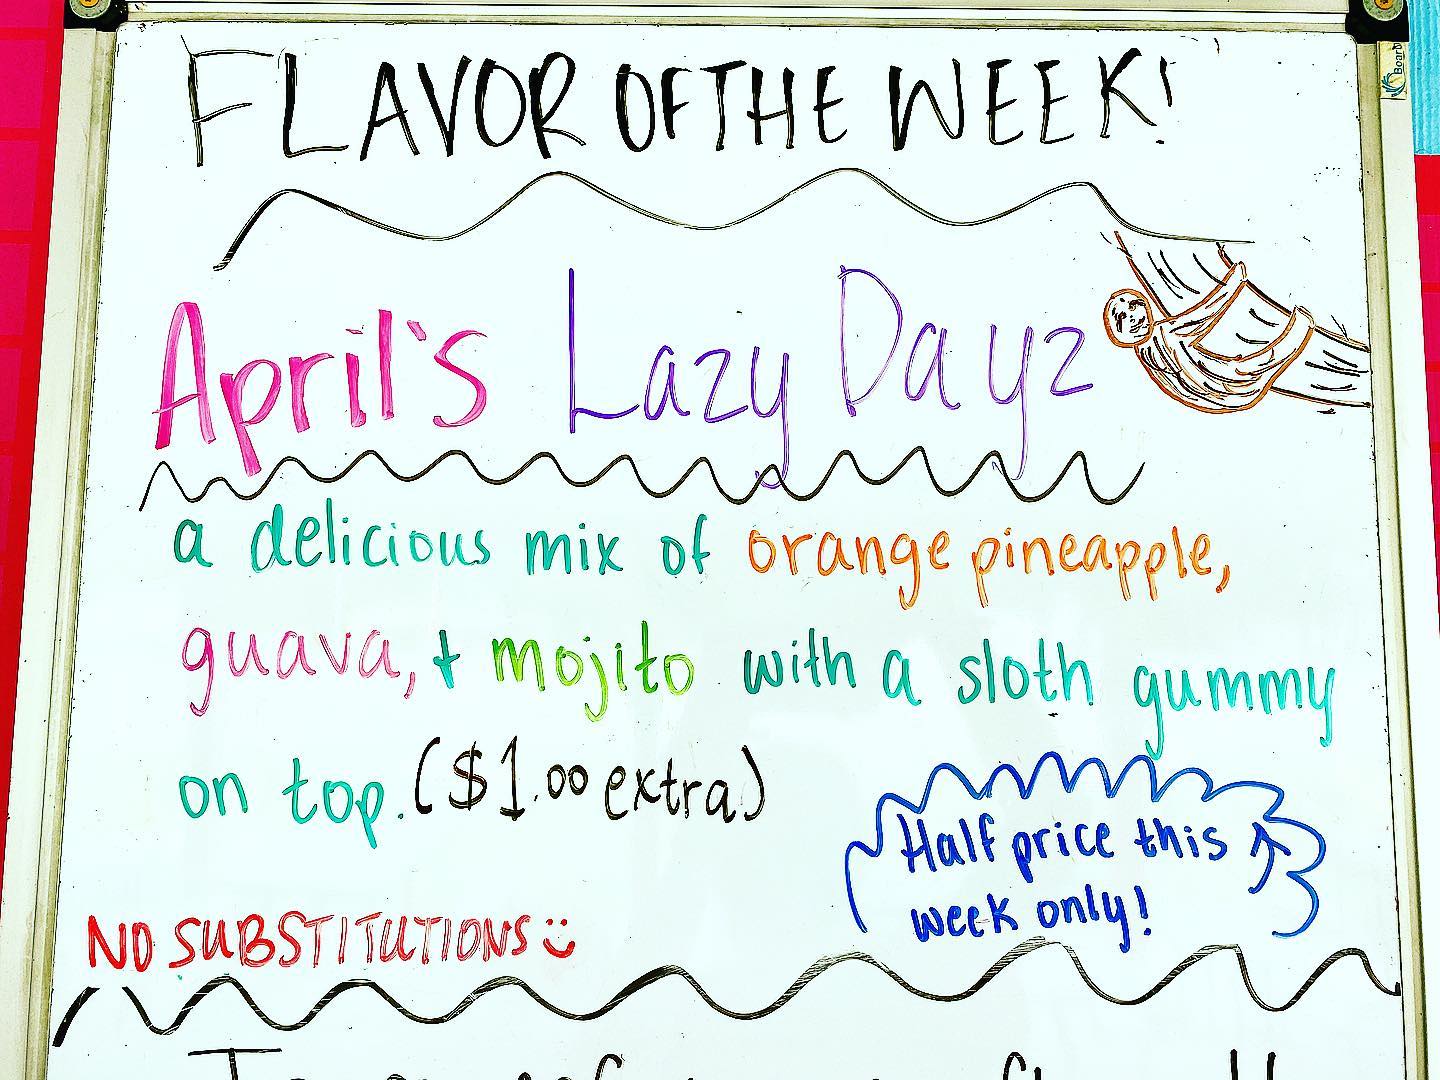 FLAVOR OF THE WEEK!
April's Lazy Dayz
a delicious mix of orange pineapple,
guava, + mojito with a sloth gummy
on top. ($1.00 extra)
Half price this
week only!
NO SUBSTITUTIONS
Board